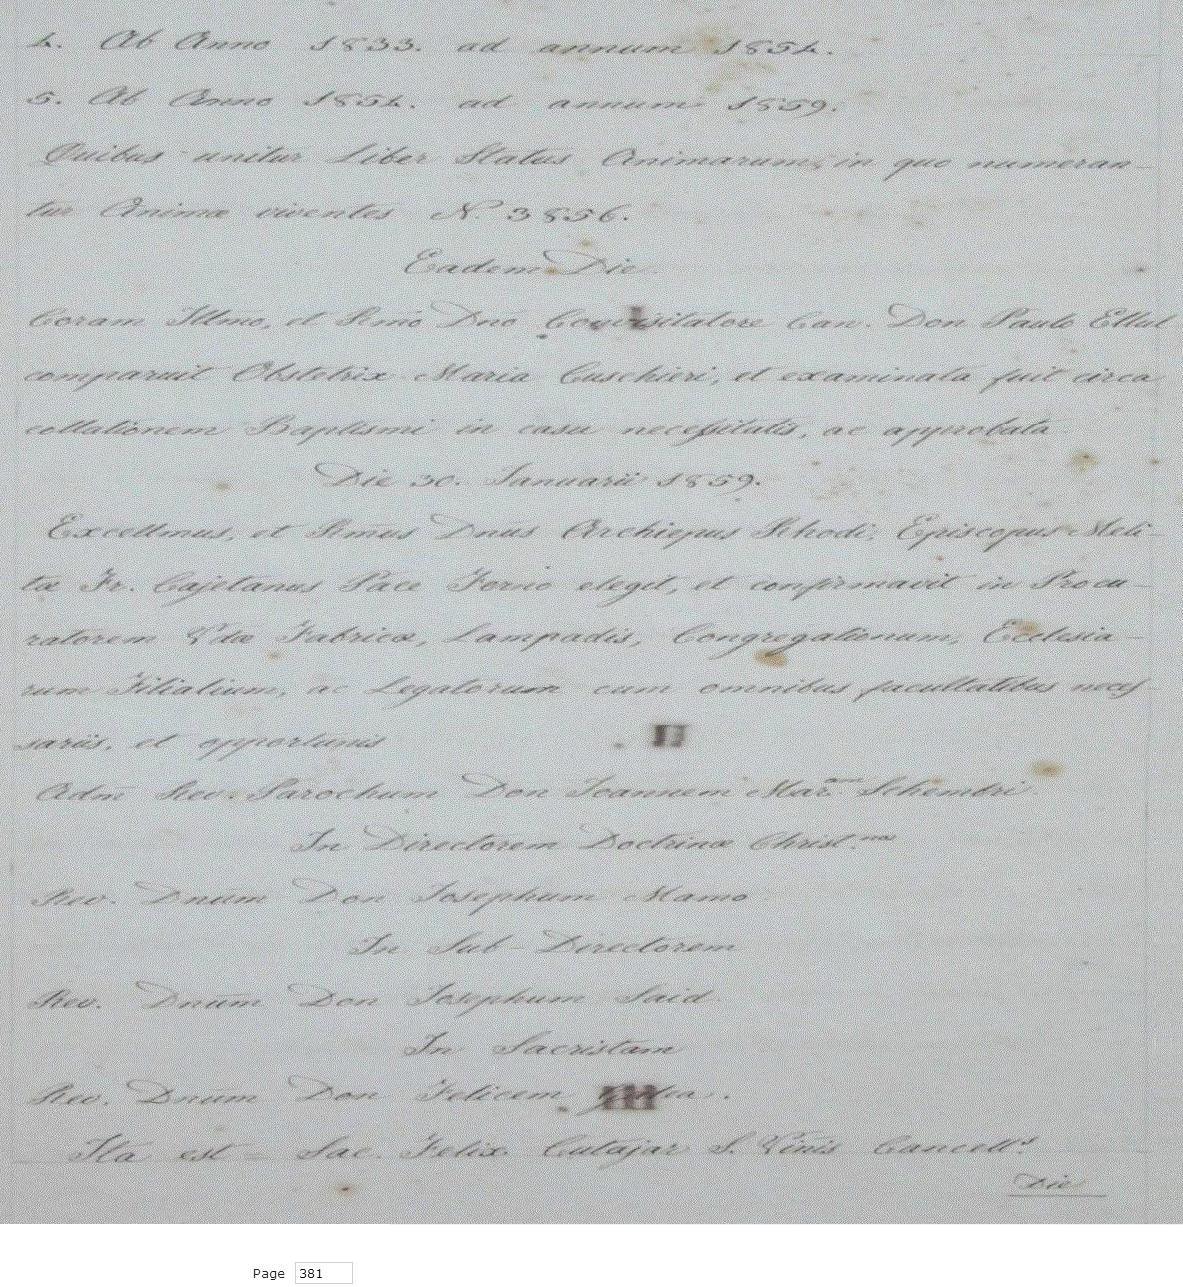 4. Ab Anno 1833. ad annum 1854.
5. Ab Anno 1854. ad annum 1859.
Quibus unitur Liber Status Animarum, in quo numeran-
tur Animæ viventes N.º 3856.
Eadem Die
Coram Illmo, et Rmo Dno Convisitatore Can. Don Paulo Ellul
comparuit Obstetrix Maria Cuschieri, et examinata fuit circa
collationem Baptismi in casu necessitatis, ac approbata
Die 30. Januarii 1859.
Excellmus, et Rmus Dnus Archiepus Rhodi, Episcopus Meli-
tæ Fr. Cajetanus Pace Forno elegit, et confirmavit in Procu-
ratorem Vtæ Fabricæ, Lampadis, Congregationum, Ecclesia-
rum Filialium, ac Legatorum cum omnibus facultatibus neces-
sariis, et opportunis
II
Adm Rev. Parochum Don Joannem Mar. Schembri
In Directorem Doctrinæ Christ.næ
Rev. Dnum Don Josephum Mamo
In Sub-Directorem
Rev. Dnum Don Josephum Said.
In Sacristam
Rev. Dnum Don Felicem
III
Ita est = Sac. Felix Cutajar S. Vinis Cancell.s
Die
Page 381